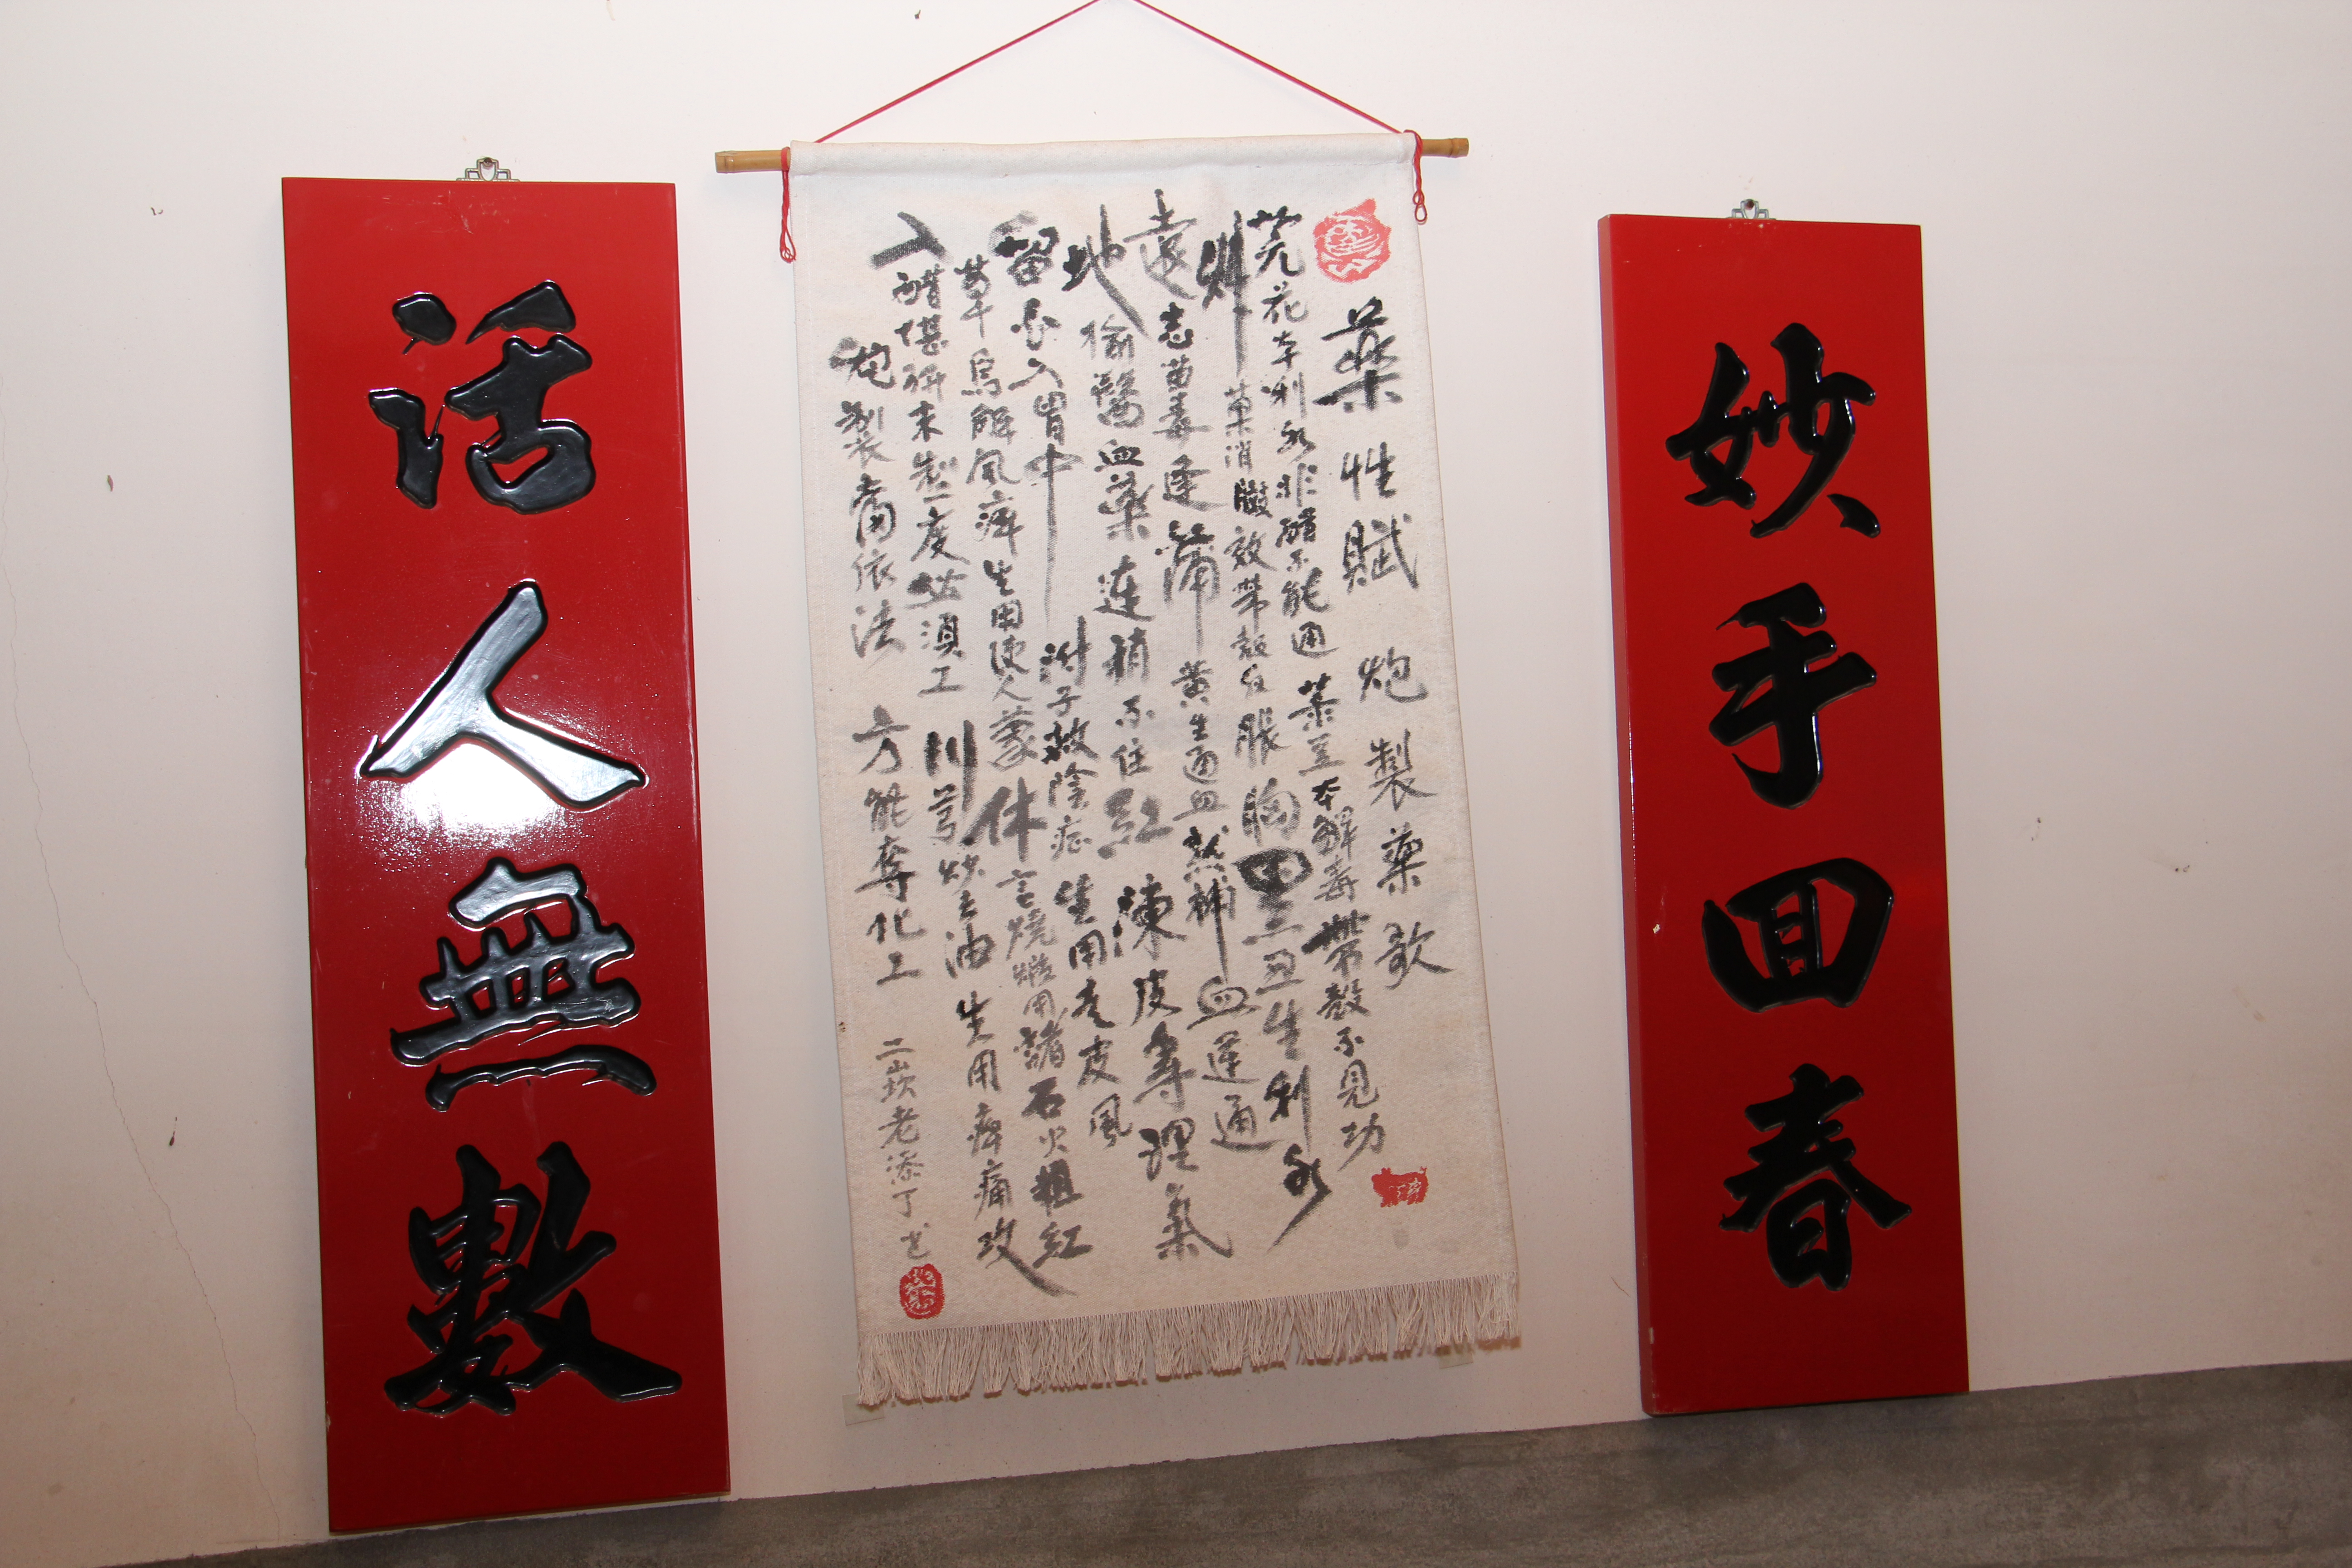 妙手回春
藥性賦 炮製藥歌
芫花本利水非醋不能通 菉豆本解毒帶殼不見功
草菓消膨效帶殼反脹胸 黑丑生利水
遠志苗毒逢 蒲黃生通血熟補血運通
地榆醫血藥連稍不住紅 陳皮專理氣
留白入胃中 附子救陰症生用走皮風
草烏解風痺生用使人蒙 休言燒煅用 石火粗紅
入醋堪研末製度必須工 川芎炒去油 生用痺痛攻
炮製當依法 方能奪化工
二崁老添丁
活人無數